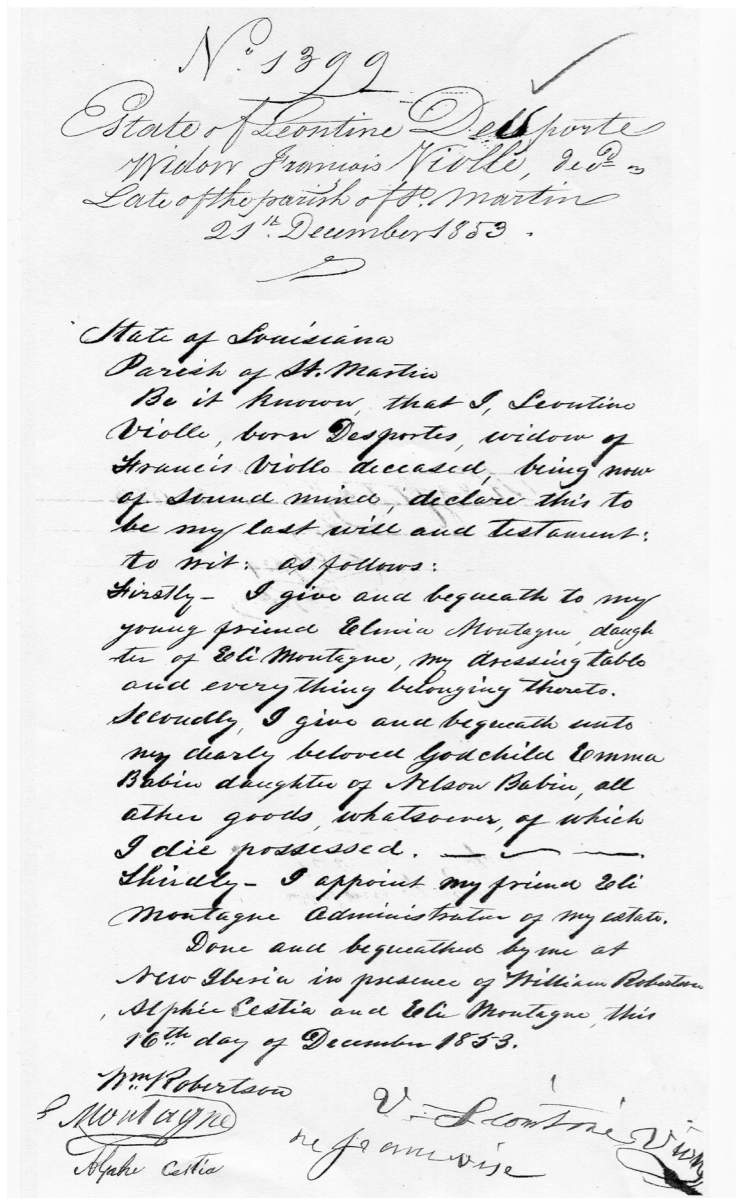 No. 1399
Estate of Leontine Desporte
Widow Francois Viollè, decd
Late of the parish of St. Martin
21st. December 1853.
State of Louisiana
Parish of St. Martin
Be it known, that I, Leontine
Violle, born Desportes, widow of
Francis Violle deceased, being now
of sound mind, declare this to
be my last will and testament:
to wit: as follows:
Firstly - I give and bequeath to my
young friend Elmia Montagne, daugh
ter of Eli Montagne, my dressing table
and everything belonging thereto.
Secondly, I give and bequeath unto
my dearly beloved Godchild Emma
Babin daughter of Nelson Babin, all
other goods, whatsoever, of which
I die possessed.
Thirdly - I appoint my friend Eli
Montagne Administrator of my estate.
Done and bequeathed by me at
New Iberia in presence of William Robertson
, Alphée Cestia and Eli Montagne, this
16th day of December 1853.
Wm Robertson
E Montagne
V. Léontine
Alphé Cestia